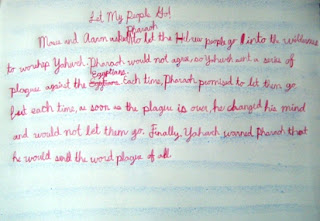 Let My People Go!
Pharaoh
Moses and Aaron asked to let the Hebrew people go into the wilderness
to worship Yahweh. Pharaoh would not agree, so Yahweh sent a series of
Egyptians.
plagues against the Each time, Pharaoh promised to let them go
but each time, as soon as the plague is over, he changed his mind
and would not let them go. Finally, Yahweh warned Pharaoh that
he would send the worst plague of all